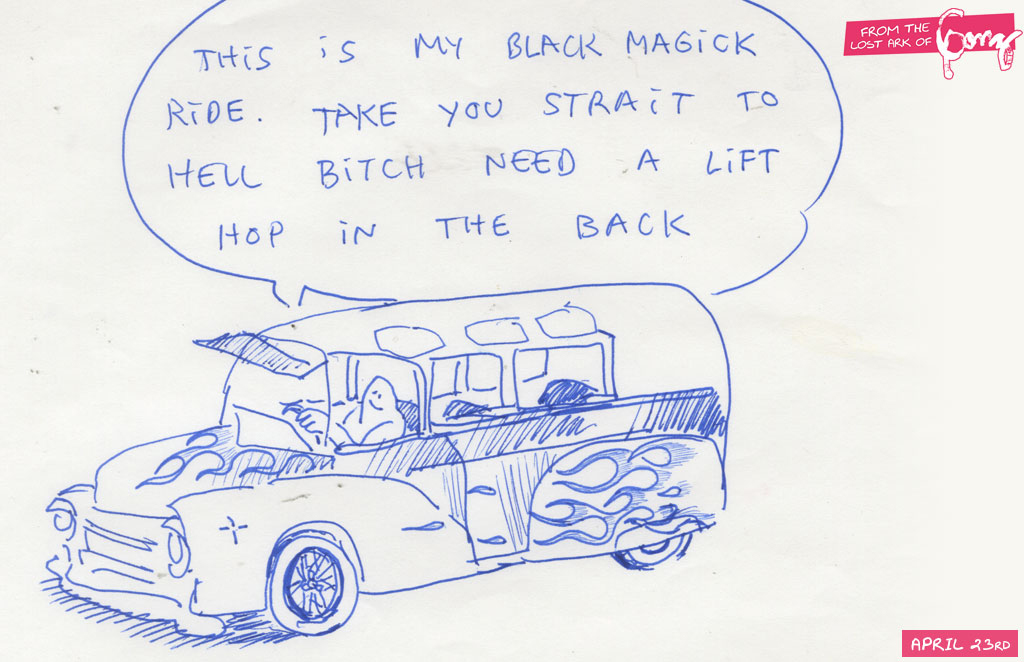 THIS IS MY BLACK MAGICK
RIDE. TAKE YOU STRAIT TO
HELL BITCH NEED A LIFT
HOP IN THE BACK
FROM THE
LOST ARK OF
APRIL 23RD